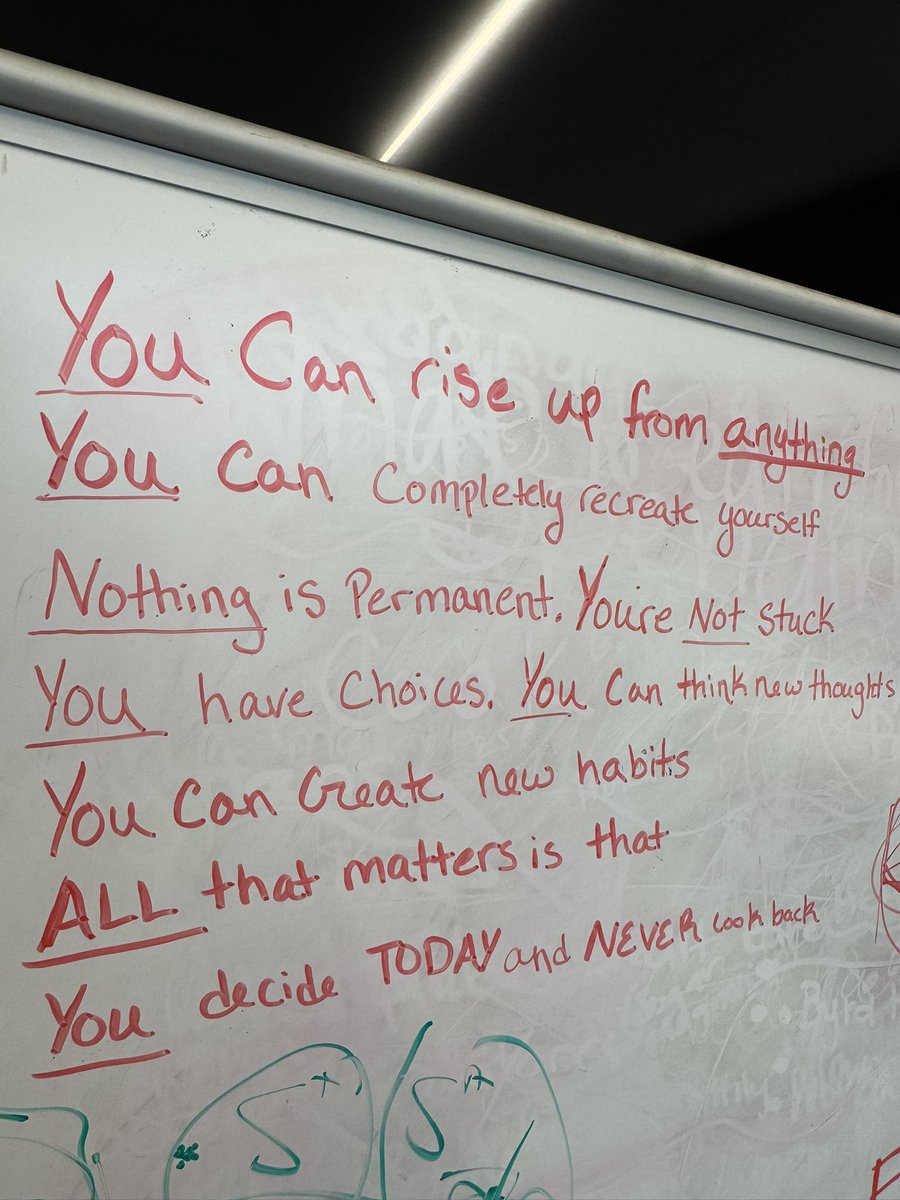 You Can rise up from anything
You Can Completely recreate yourself
Nothing is Permanent. You're Not Stuck
You have Choices. You Can think new thoughts
You Can Create new habits
ALL that matters is that
You decide TODAY and NEVER look back
S S